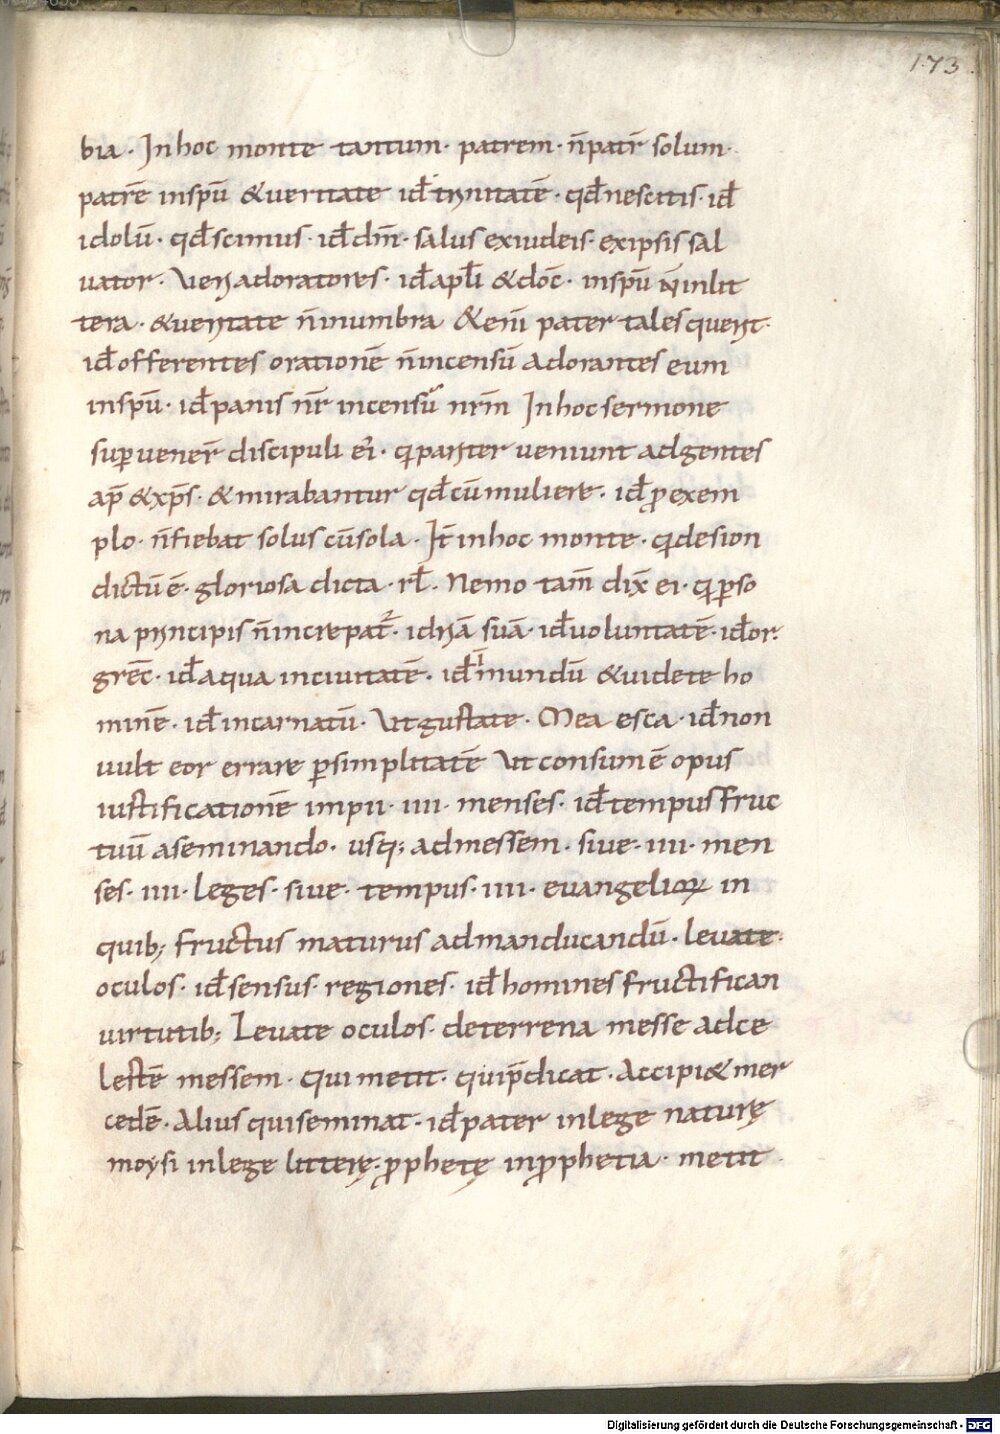 173
bia · In hoc monte tantum · patrem · n̄ patr̄ solum ·
patrē in spū & ueritate id̄ trinitatē · qd̄ nescitis · id̄
idolū · qd̄ scimus · id̄ dn̄i · salus ex iudeis · ex ipsis sal
uator · Veri adoratores · id̄ apl̄i & doc̄ · in spū n̄ in lit
tera · & ueritate n̄ in umbra & eni pater tales querit ·
id̄ offerentes orationē n̄ incensū adorantes eum
in spū · id̄ panis nr̄ incensū nrm̄ In hoc sermone
superuener̄ discipuli ei · qi pariter ueniunt ad gentes
ap̄ & xp̄s · & mirabantur qd̄ cū muliere · id̄ ꝓ exem
plo · n̄ fiebat solus cū sola · It̄ in hoc monte · qi de sion
dictū ē · gloriosa dicta · rl̄ · Nemo tam̄ dix̄ ei · qi ꝑso
na principis n̄ increpat᷑ · idriā suā · id̄ uoluntatē · id̄ or ·
grēc · id̄ aqua in ciuitatē · id̄ in mundū & uidete ho
minē · id̄ incarnatū · Vt gustate · Mea esca · id̄ non
uult eor errare ꝑ simplitatē Vt consum̄ ē opus
iustificationē impii · iiii · menses · id̄ tempus fruc
tuū a seminando · usq; ad messem · siue · iiii · men
ses · iiii · leges · siue · tempus · iiii · euangelioꝝ in
quib; fructus maturus ad manducandū · leuate ·
oculos · id̄ sensus · regiones · id̄ homines fructifican
uirtutib; Leuate oculos · de terrena messe ad ce
lestē messem · Qui metit · qui p̄dicat · Accipi& mer
cedē · Alius qui seminat · id̄ pater in lege naturę
moysi in lege litterę · ꝓphetę in ꝓphetia · metit ·
Digitalisierung gefördert durch die Deutsche Forschungsgemeinschaft - DFG